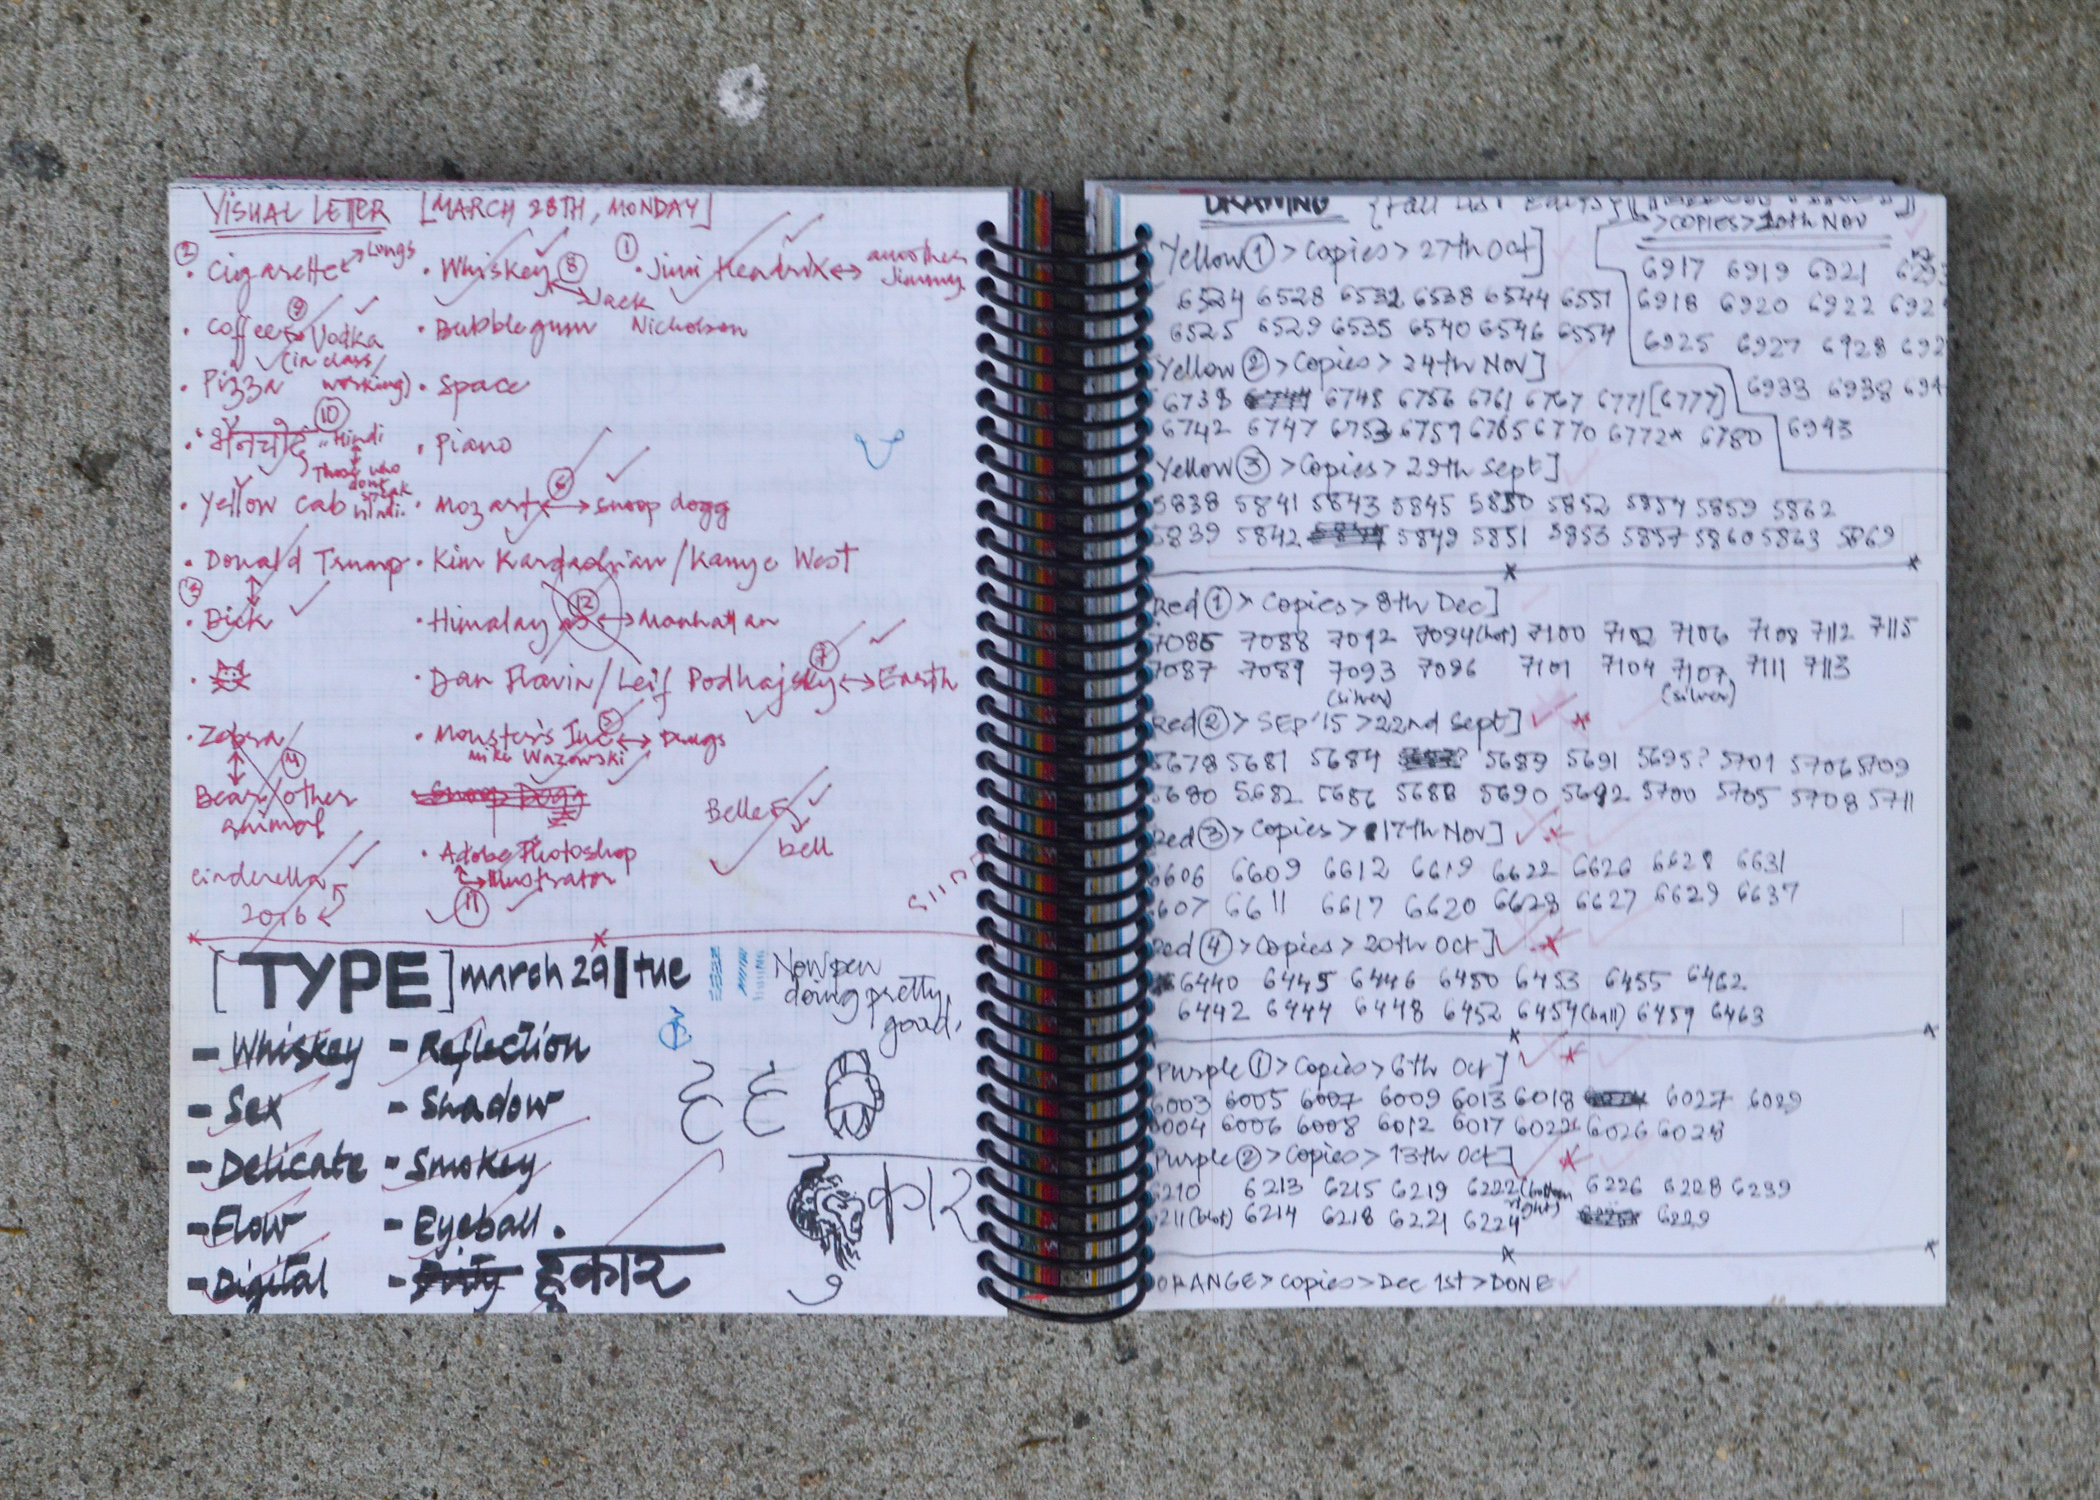 VISUAL LETTER [MARCH 28TH, MONDAY]
② • Cigarette ↔ Lungs
• Coffee ↔ Vodka ⑨
(in class/
working)
• Pizza
⑩ Hindi
↕
Those who
dont
speak
Hindi.
• Yellow cab
• Donald Trump
③ ↕
• Dick
•
• Zebra
↕ ④
Bear/other
animal
cinderella
2016
• Whiskey ⑧
↔ Jack
Nicholson
① • Jimi Hendrix ↔ another
Jimmy
• Bubblegum
• Space
• Piano
• Mozart ⑥ ↔ Snoop dogg
• Kim Kardashian/Kanye West
• Himalayas ⑫ ↔ Manhattan
• Dan Flavin/Leif Podhajsky ⑦ ↔ Earth
• Monster's Inc ⑤ ↔ Drugs
Mike Wazowski
Snoop Dogg
Belle
bell
• Adobe Photoshop
↔ Illustrator
⑪
[TYPE] march 29 | tue
Now pen
doing pretty
good.
- Whiskey
- Sex
- Delicate
- Flow
- Digital
- Reflection
- Shadow
- Smokey
- Eyeball.
-
हूकार
कार
DRAWING
>COPIES>10th Nov
6917 6919 6921
6918 6920 6922
6925 6927 6928
6933 6938
6943
Yellow ① > Copies > 27th Oct]
6524 6528 6532 6538 6544 6551
6525 6529 6535 6540 6546 6554
Yellow ② > Copies > 24th Nov]
6738 6744 6748 6756 6761 6767 6771 [6777]
6742 6747 6753 6759 6765 6770 6772* 6780
Yellow ③ > Copies > 29th Sept]
5838 5841 5843 5845 5850 5852 5854 5859 5862
5839 5842 5849 5851 5853 5857 5860 5863 5869
Red ① > Copies > 8th Dec]
7085 7088 7092 7094 (hot) 7100 7102 7106 7108 7112 7115
7087 7089 7093 7096 7101 7104 7107 7111 7113
(silver) (silver)
Red ② > SEP'15 > 22nd Sept]
5678 5681 5684 5689 5691 5695? 5701 5706 5709
5680 5682 5686 5688 5690 5692 5700 5705 5708 5711
Red ③ > Copies > 17th Nov]
6606 6609 6612 6619 6622 6626 6628 6631
6607 6611 6617 6620 6623 6627 6629 6637
Red ④ > Copies > 20th Oct]
6440 6445 6446 6450 6453 6455 6462
6442 6444 6448 6452 6454 (ball) 6459 6463
Purple ① > Copies > 6th Oct]
6003 6005 6007 6009 6013 6018 6027 6029
6004 6006 6008 6012 6017 6022 6026 6028
Purple ② > Copies > 13th Oct]
6210 6213 6215 6219 6222 (bottom right) 6226 6228 6239
6211 6214 6218 6221 6224 6229
ORANGE > Copies > Dec 1st > DONE